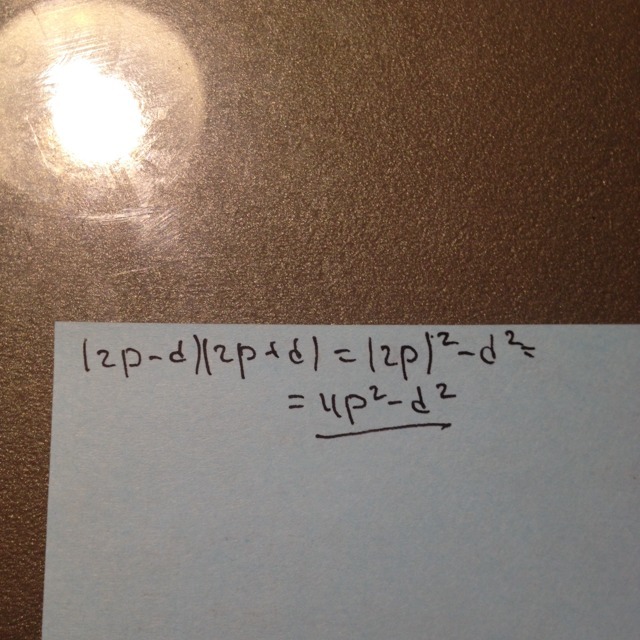 (2p-d)(2p+d) = (2p)²-d²=
= 4p²-d²